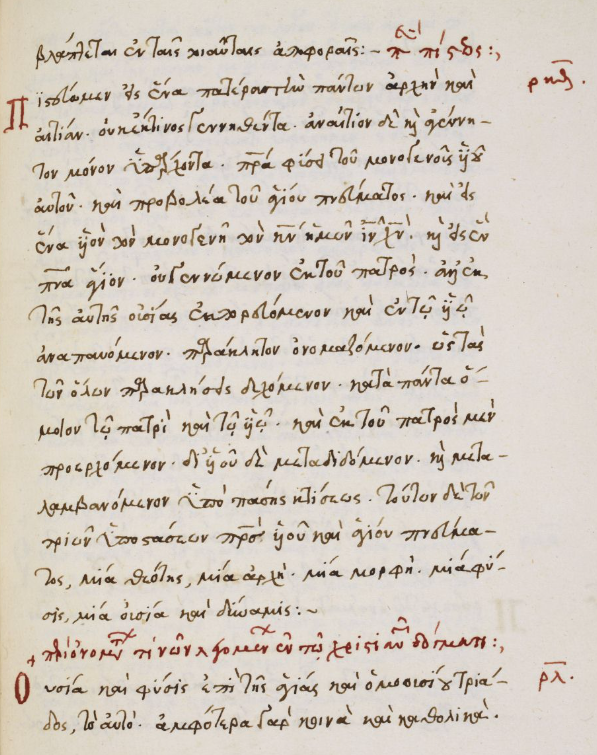 βλάπτεται ἐν ταῖς τοιαύταις ἀμφοραῖς:- περὶ πίστεως:,
Πιστεύομεν εἰς ἕνα πατέρα τῶν πάντων ἀρχὴν καὶ ρκθ.
αἰτίαν· οὐκ ἔκ τινος γεννηθέντα· ἀναίτιον δὲ καὶ ἀγέννη-
τον μόνον ὑπάρχοντα· πρα φύσει τοῦ μονογενοῦς υἱοῦ
αὐτοῦ· καὶ προβολέα τοῦ ἁγίου πνεύματος· καὶ εἰς
ἕνα υἱὸν τὸν μονογενῆ τὸν κν ἡμῶν ιν χν· καὶ εἰς ἓν
πνα ἅγιον· οὐ γεννώμενον ἐκ τοῦ πατρὸς· ἀλλ' ἐκ
τῆς αὐτῆς οὐσίας ἐκπορευόμενον καὶ ἐν τῷ υἱῷ
ἀναπαυόμενον· παράκλητον ὀνομαζόμενον· ὡς τὰς
τῶν ὅλων παρακλήσεις δεχόμενον· κατὰ πάντα ὅ-
μοιον τῷ πατρὶ καὶ τῷ υἱῷ· καὶ ἐκ τοῦ πατρὸς μὲν
προερχόμενον· δι' υἱοῦ δὲ μεταδιδόμενον· καὶ μετα-
λαμβανόμενον ὑπὸ πάσης κτίσεως· τούτων δὲ τῶν
τριῶν ὑποστάσεων πρσ υἱοῦ καὶ ἁγίου πνεύμα-
τος, μία θεότης, μία ἀρχὴ· μία μορφὴ· μία φύ-
σις, μία οὐσία καὶ δύναμις:~
περὶ ὀνομάτων τινῶν λεγομένων ἐν τῷ χριστιανῶν δόγματι:,
Οὐσία καὶ φύσις ἐπὶ τῆς ἁγίας καὶ ὁμοουσίου τριά- ρλ.
δος, τὸ αὐτό· ἀμφότερα γὰρ κοινὰ καὶ καθολικὰ·